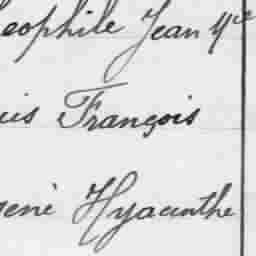 eophile Jean M^ie
uis François
gené Hyacinthe